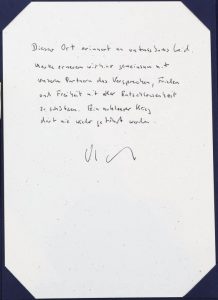 Dieser Ort erinnert an unfassbares Leid.
Heute erneuern wir hier gemeinsam mit
unseren Partnern das Versprechen, Frieden
und Freiheit mit aller Entschlossenheit
zu schützen. Ein solcher Krieg
darf nie wieder geführt werden.